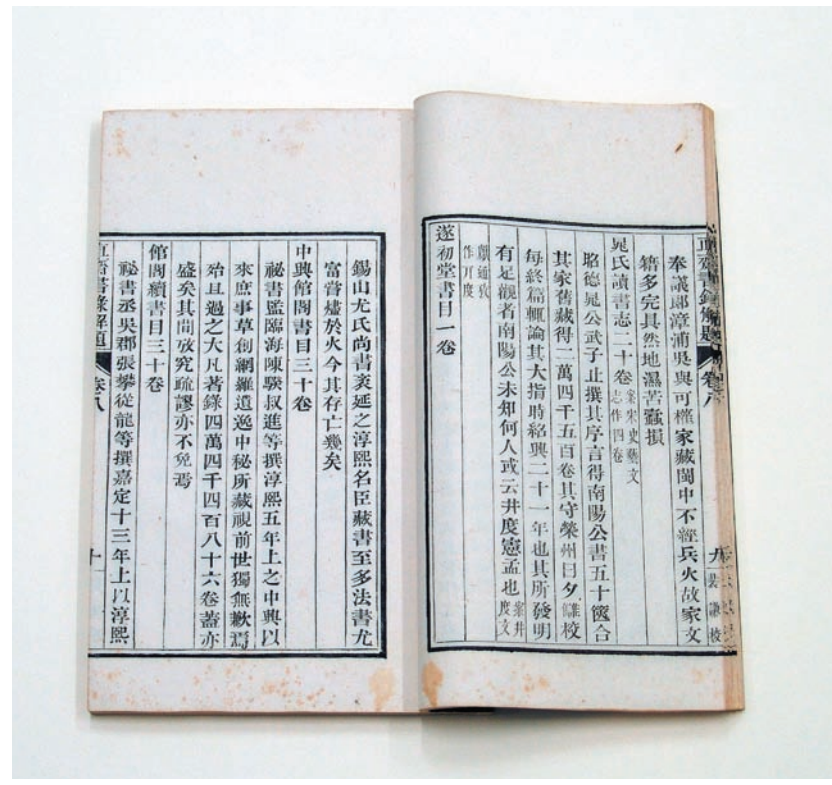 直齋書錄解題 卷八
奉議郎漳浦吳與可權家藏閩中不經兵火故家文
籍多完具然地濕苦蠹損
晁氏讀書志二十卷案宋史藝文志作四卷
昭德晁公武子止撰其序言得南陽公書五十篋合
其家舊藏得二萬四千五百卷其守榮州日夕讎校
每終篇輒論其大指時紹興二十一年也其所發明
有足觀者南陽公未知何人或云井度憲孟也案井度文獻通攷作亓度
遂初堂書目一卷
錫山尤氏尚書袤延之淳熙名臣藏書至多法書尤
富嘗燼於火今其存亡幾矣
中興館閣書目三十卷
祕書監臨海陳騤叔進等撰淳熙五年上之中興以
來庶事草創網羅遺逸中秘所藏視前世獨無歉焉
殆且過之大凡著錄四萬四千四百八十六卷蓋亦
盛矣其間攷究疏謬亦不免焉
館閣續書目三十卷
祕書丞吳郡張攀從龍等撰嘉定十三年上以淳熙
直齋書錄解題 卷八 十